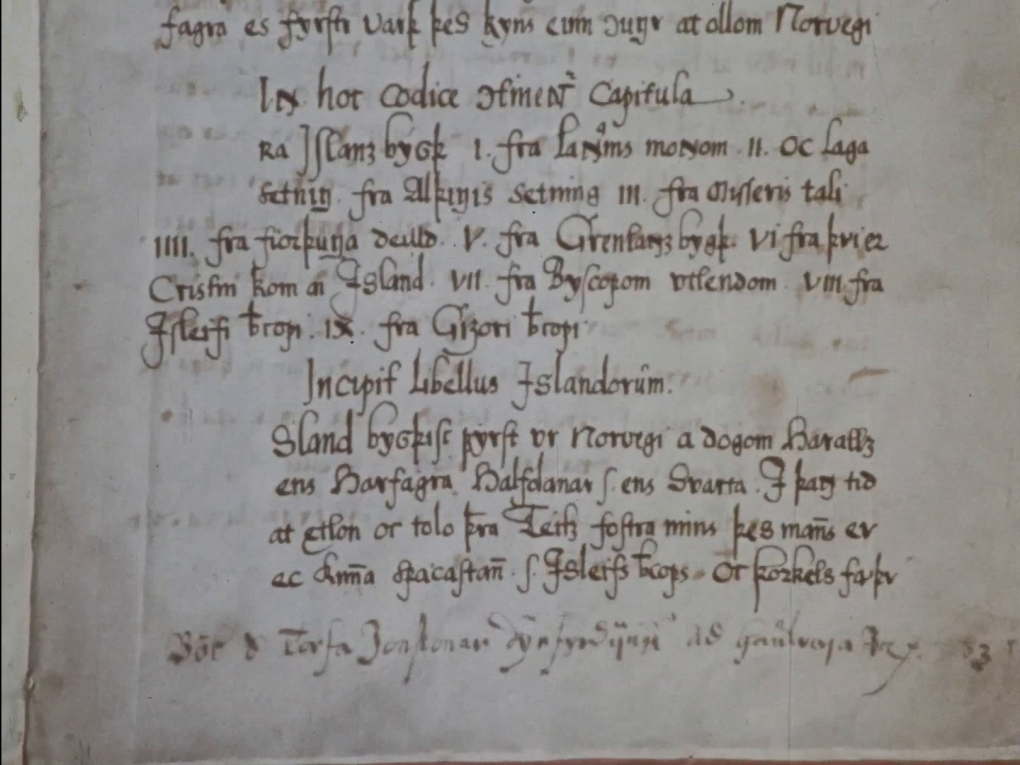 fagra es fyrstr varþ þes kyns einn cungr at ollom Norvegi
In hoc codice continentur Capitula
Ra Islanz bygþ I. fra Lanams monom II. oc laga
setning. fra Alþingis setning III. fra Misseris tali
IIII. fra fiorþunga deilld. V. fra Grenlanz bygþ. VI fra þvi er
Cristni kom a Island. VII. fra Byscopom utlendom. VIII. fra
Isleifi bcopi. IX. fra Gizori bcopi
Incipit Libellus Islandorum.
Sland bygþisc fyrst ur Norvegi a dogom Haralldz
ens Harfagra. Halfdanar s. ens Svarta. I þan tid
at etlon oc tolo þra Teitz fostra mins þes mans er
ec kunna spacastan. s. Isleifs bcops. Oc Þorkels faþr
Torfa Jonsonar